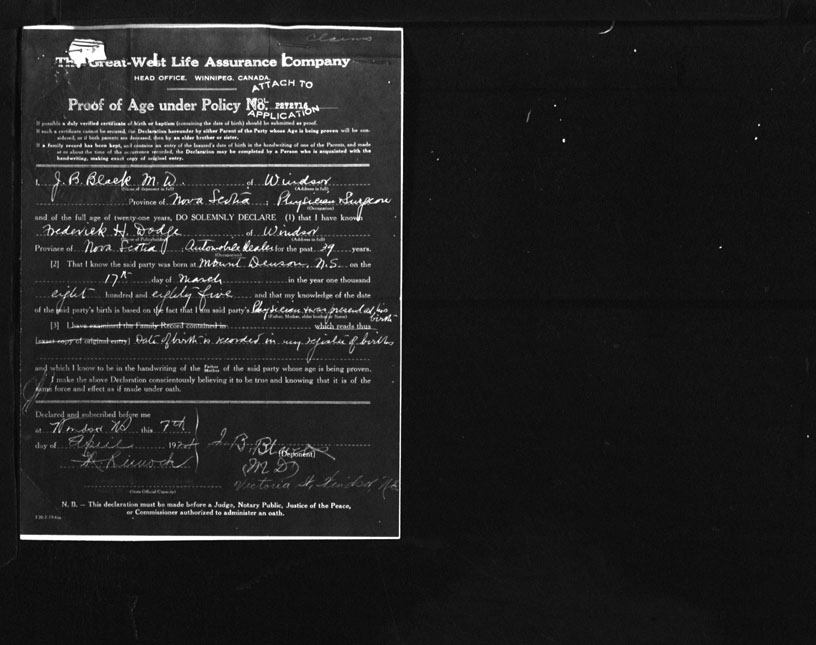 Claims
The Great-West Life Assurance Company
HEAD OFFICE, WINNIPEG, CANADA
ATTACH TO
Proof of Age under Policy No. P272716
APPLICATION
If possible a duly verified certificate of birth or baptism (containing the date of birth) should be submitted as proof.
If such a certificate cannot be secured, the Declaration hereunder by either Parent of the Party whose Age is being proven will be con-
sidered, or if both parents are deceased, then by an elder brother or sister.
If a family record has been kept, and contains an entry of the Insured's date of birth in the handwriting of one of the Parents, and made
at or about the time of the occurrence recorded, the Declaration may be completed by a Person who is acquainted with the
handwriting, making exact copy of original entry.
I, J. B. Black M.D. of Windsor
(Name of deponent in full) (Address in full)
Province of Nova Scotia ; Physician & Surgeon
(Occupation)
and of the full age of twenty-one years, DO SOLEMNLY DECLARE (1) that I have known
Frederick H. Dodge of Windsor
(Name of Policyholder) (Address in full)
Province of Nova Scotia ; Automobile Dealer for the past 39 years.
(Occupation)
[2] That I know the said party was born at Mount Denson, N.S. on the
17th day of March in the year one thousand
eight hundred and eighty five and that my knowledge of the date
of the said party's birth is based on the fact that I am said party's Physician & was present at his birth
(Father, Mother, elder brother or Sister)
[3] I have examined the Family Record contained in which reads thus
[exact copy of original entry] Date of birth is recorded in my register of births
and which I know to be in the handwriting of the Father Mother of the said party whose age is being proven.
I make the above Declaration conscientiously believing it to be true and knowing that it is of the
same force and effect as if made under oath.
Declared and subscribed before me
at Windsor NS this 7th
day of April 1924 J. B. Black
(Deponent)
(M D)
Victoria St, Windsor, N.S.
(State Official Capacity)
N. B. — This declaration must be made before a Judge, Notary Public, Justice of the Peace,
or Commissioner authorized to administer an oath.